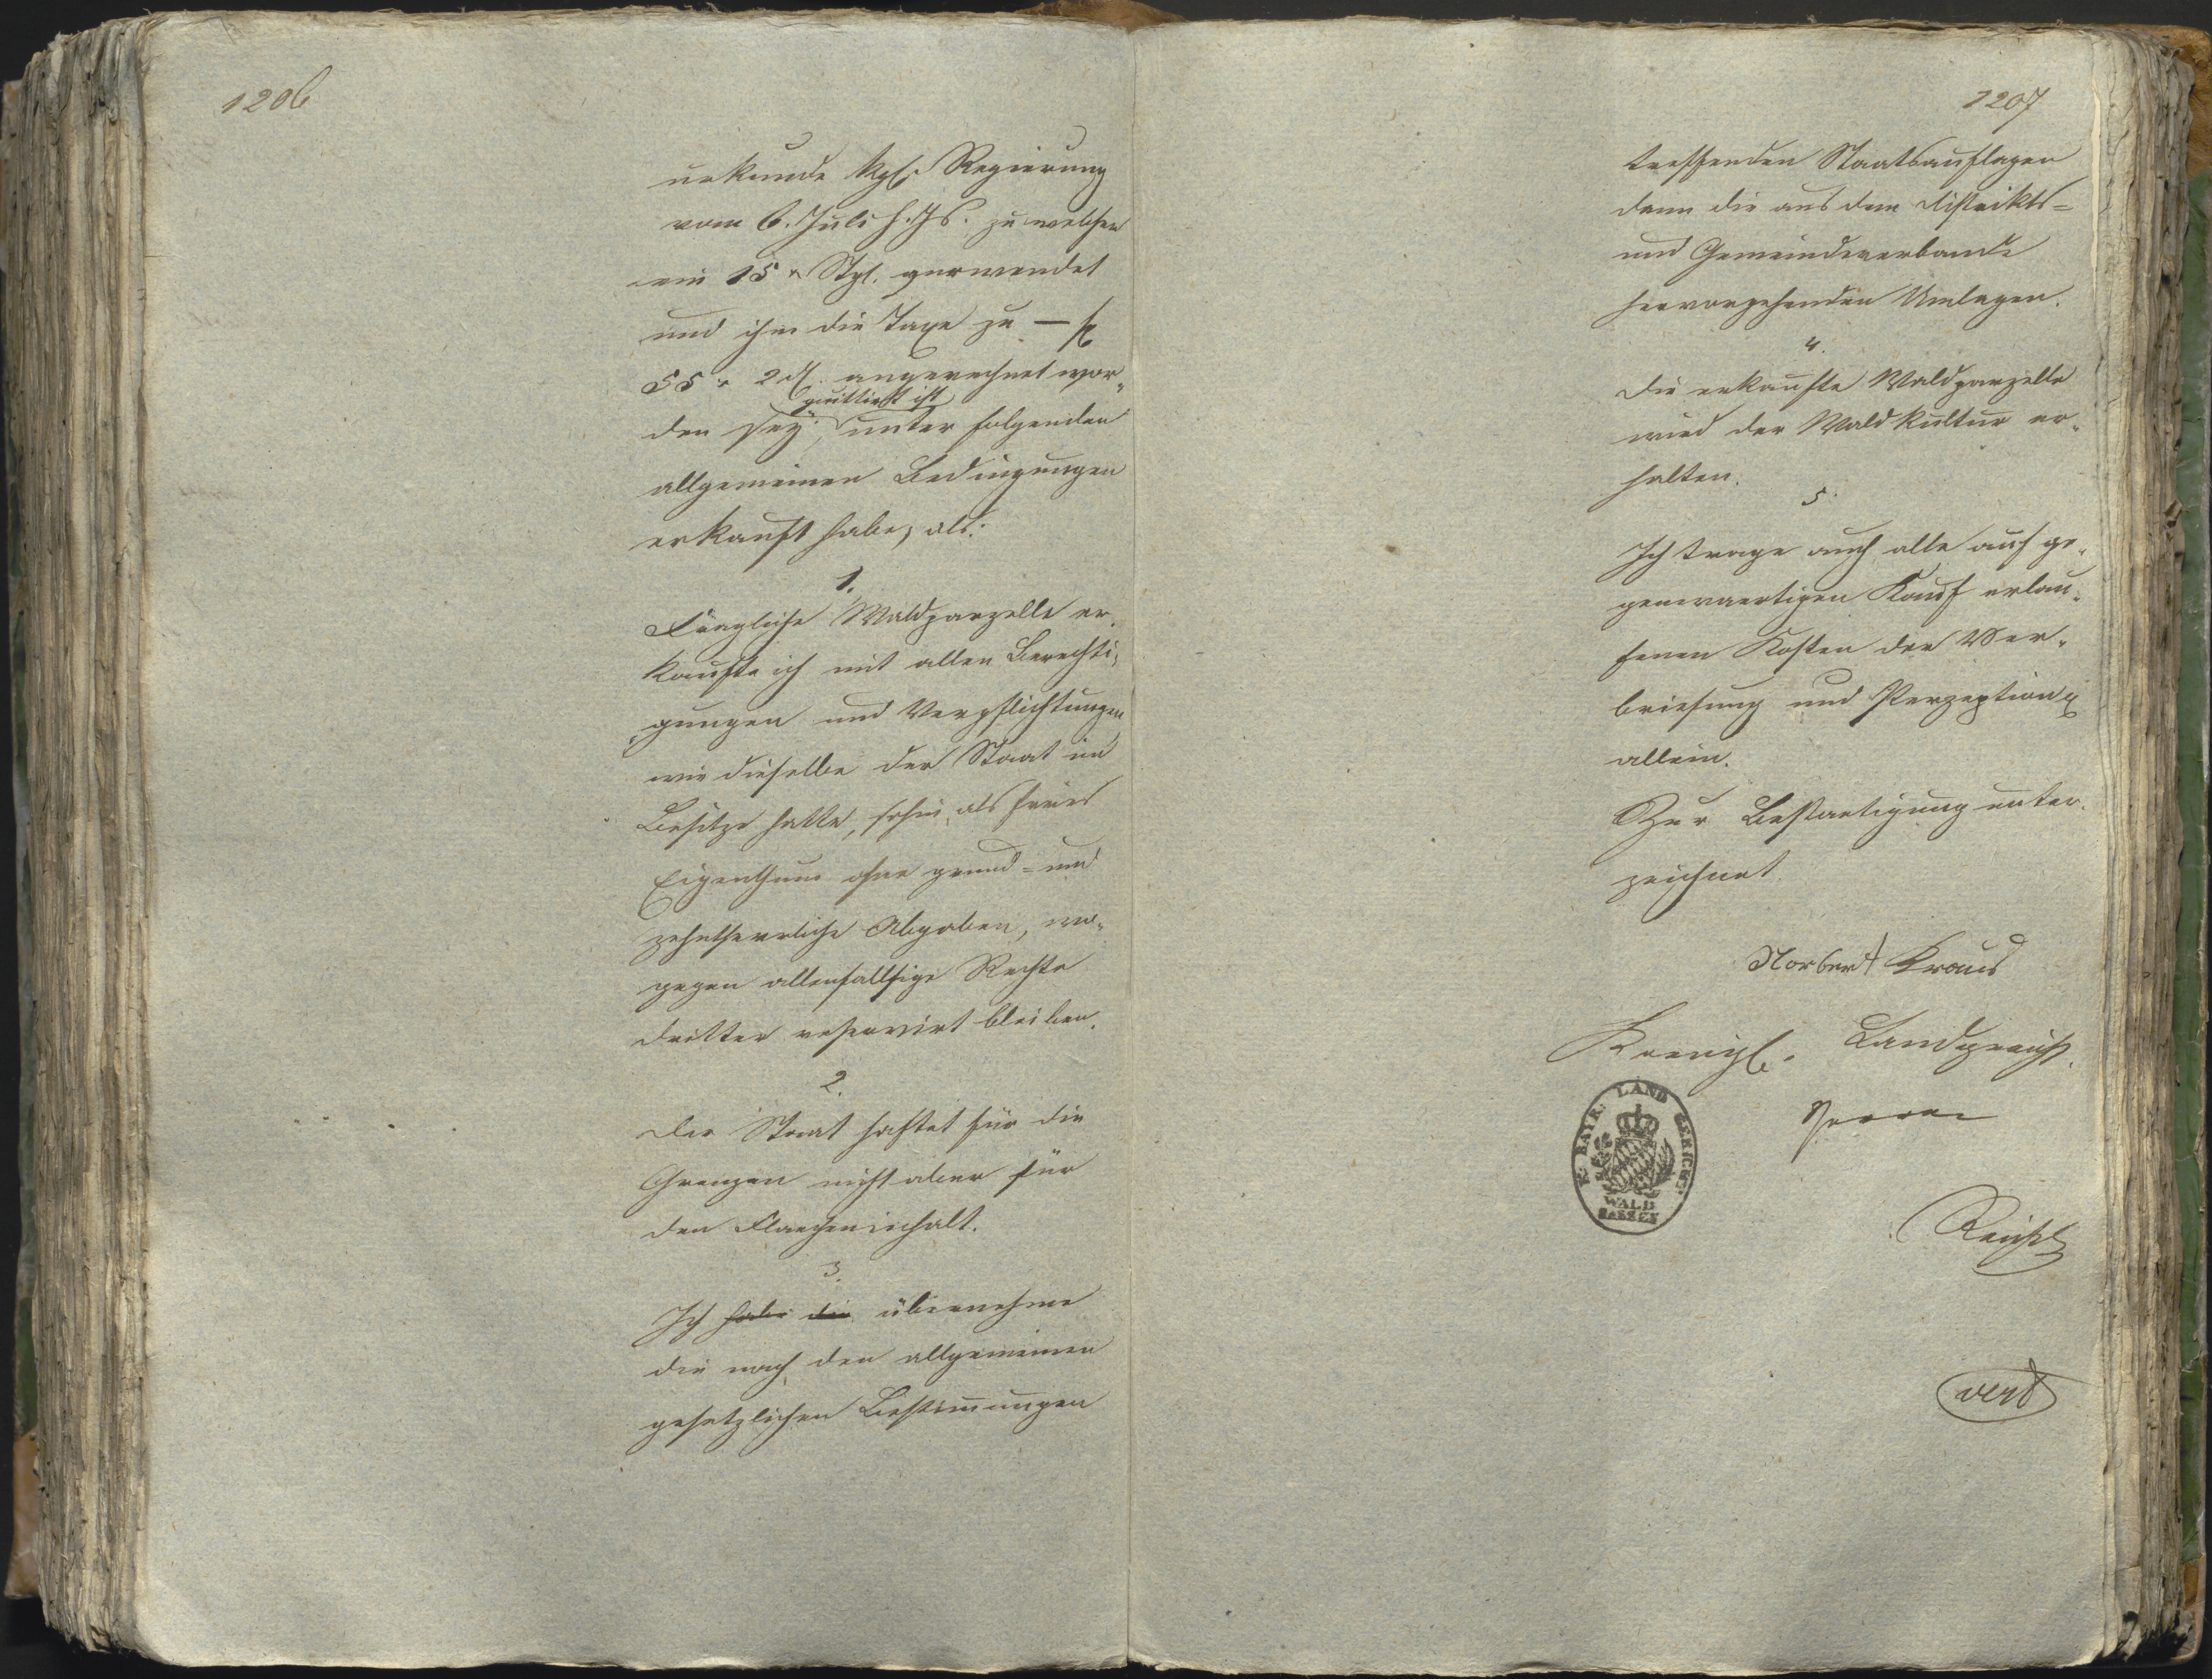 1206
urkunde kgl. Regierung
vom 6. Juli h. Js. zu welchen
ein 15 x Stpl. verwendet
und ihm die Taxe zu — f
55 x 2 d. angerechnet wor-
quittirt ist
den sey; unter folgenden
allgemeinen Bedingungen
erkauft habe, als:
1.
Waldparzelle er-
kaufte ich mit allen Berechti-
gungen und Verpflichtungen
wie dieselbe der Staat im
Besitze hatte, sohin als freies
Eigenthum ohne grund- und
zehntherrliche Abgaben, wo-
gegen allenfallsige Rechte
dritter reservirt bleiben.
2.
Der Staat haftet für die
Grenzen nicht aber für
den Flaecheninhalt.
3.
Ich habe die übernehme
die nach den allgemeinen
gesetzlichen Bestimungen
1207
treffenden Staatsauflagen
dann die aus dem Distrikts-
und Gemeindeverbande
hervorgehenden Umlagen.
4.
Die erkaufte Waldparzelle
wird der Waldkultur er-
halten.
5.
Ich trage auch alle auf ge-
genwaertigen Kauf erlau-
fenen Kosten der Ver-
briefung und Perzeption
allein.
Zur Bestaetigung unter-
zeichnet.
Norbert Kraus
Koenigl. Landgericht.
K. BAYR. LAND GERICHT
WALD
SASSEN
vert